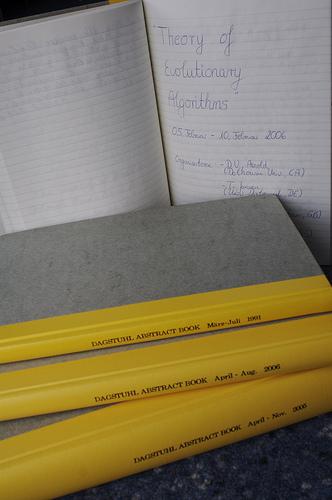 "Theory of
Evolutionary
Algorithms"
05. Februar - 10. Februar 2006
Organisatoren: - D.V. Arnold
(Dalhousie Univ., CA)
DAGSTUHL ABSTRACT BOOK März-Juli 1991
DAGSTUHL ABSTRACT BOOK April - Aug. 2006
DAGSTUHL ABSTRACT BOOK April - Nov. 2005